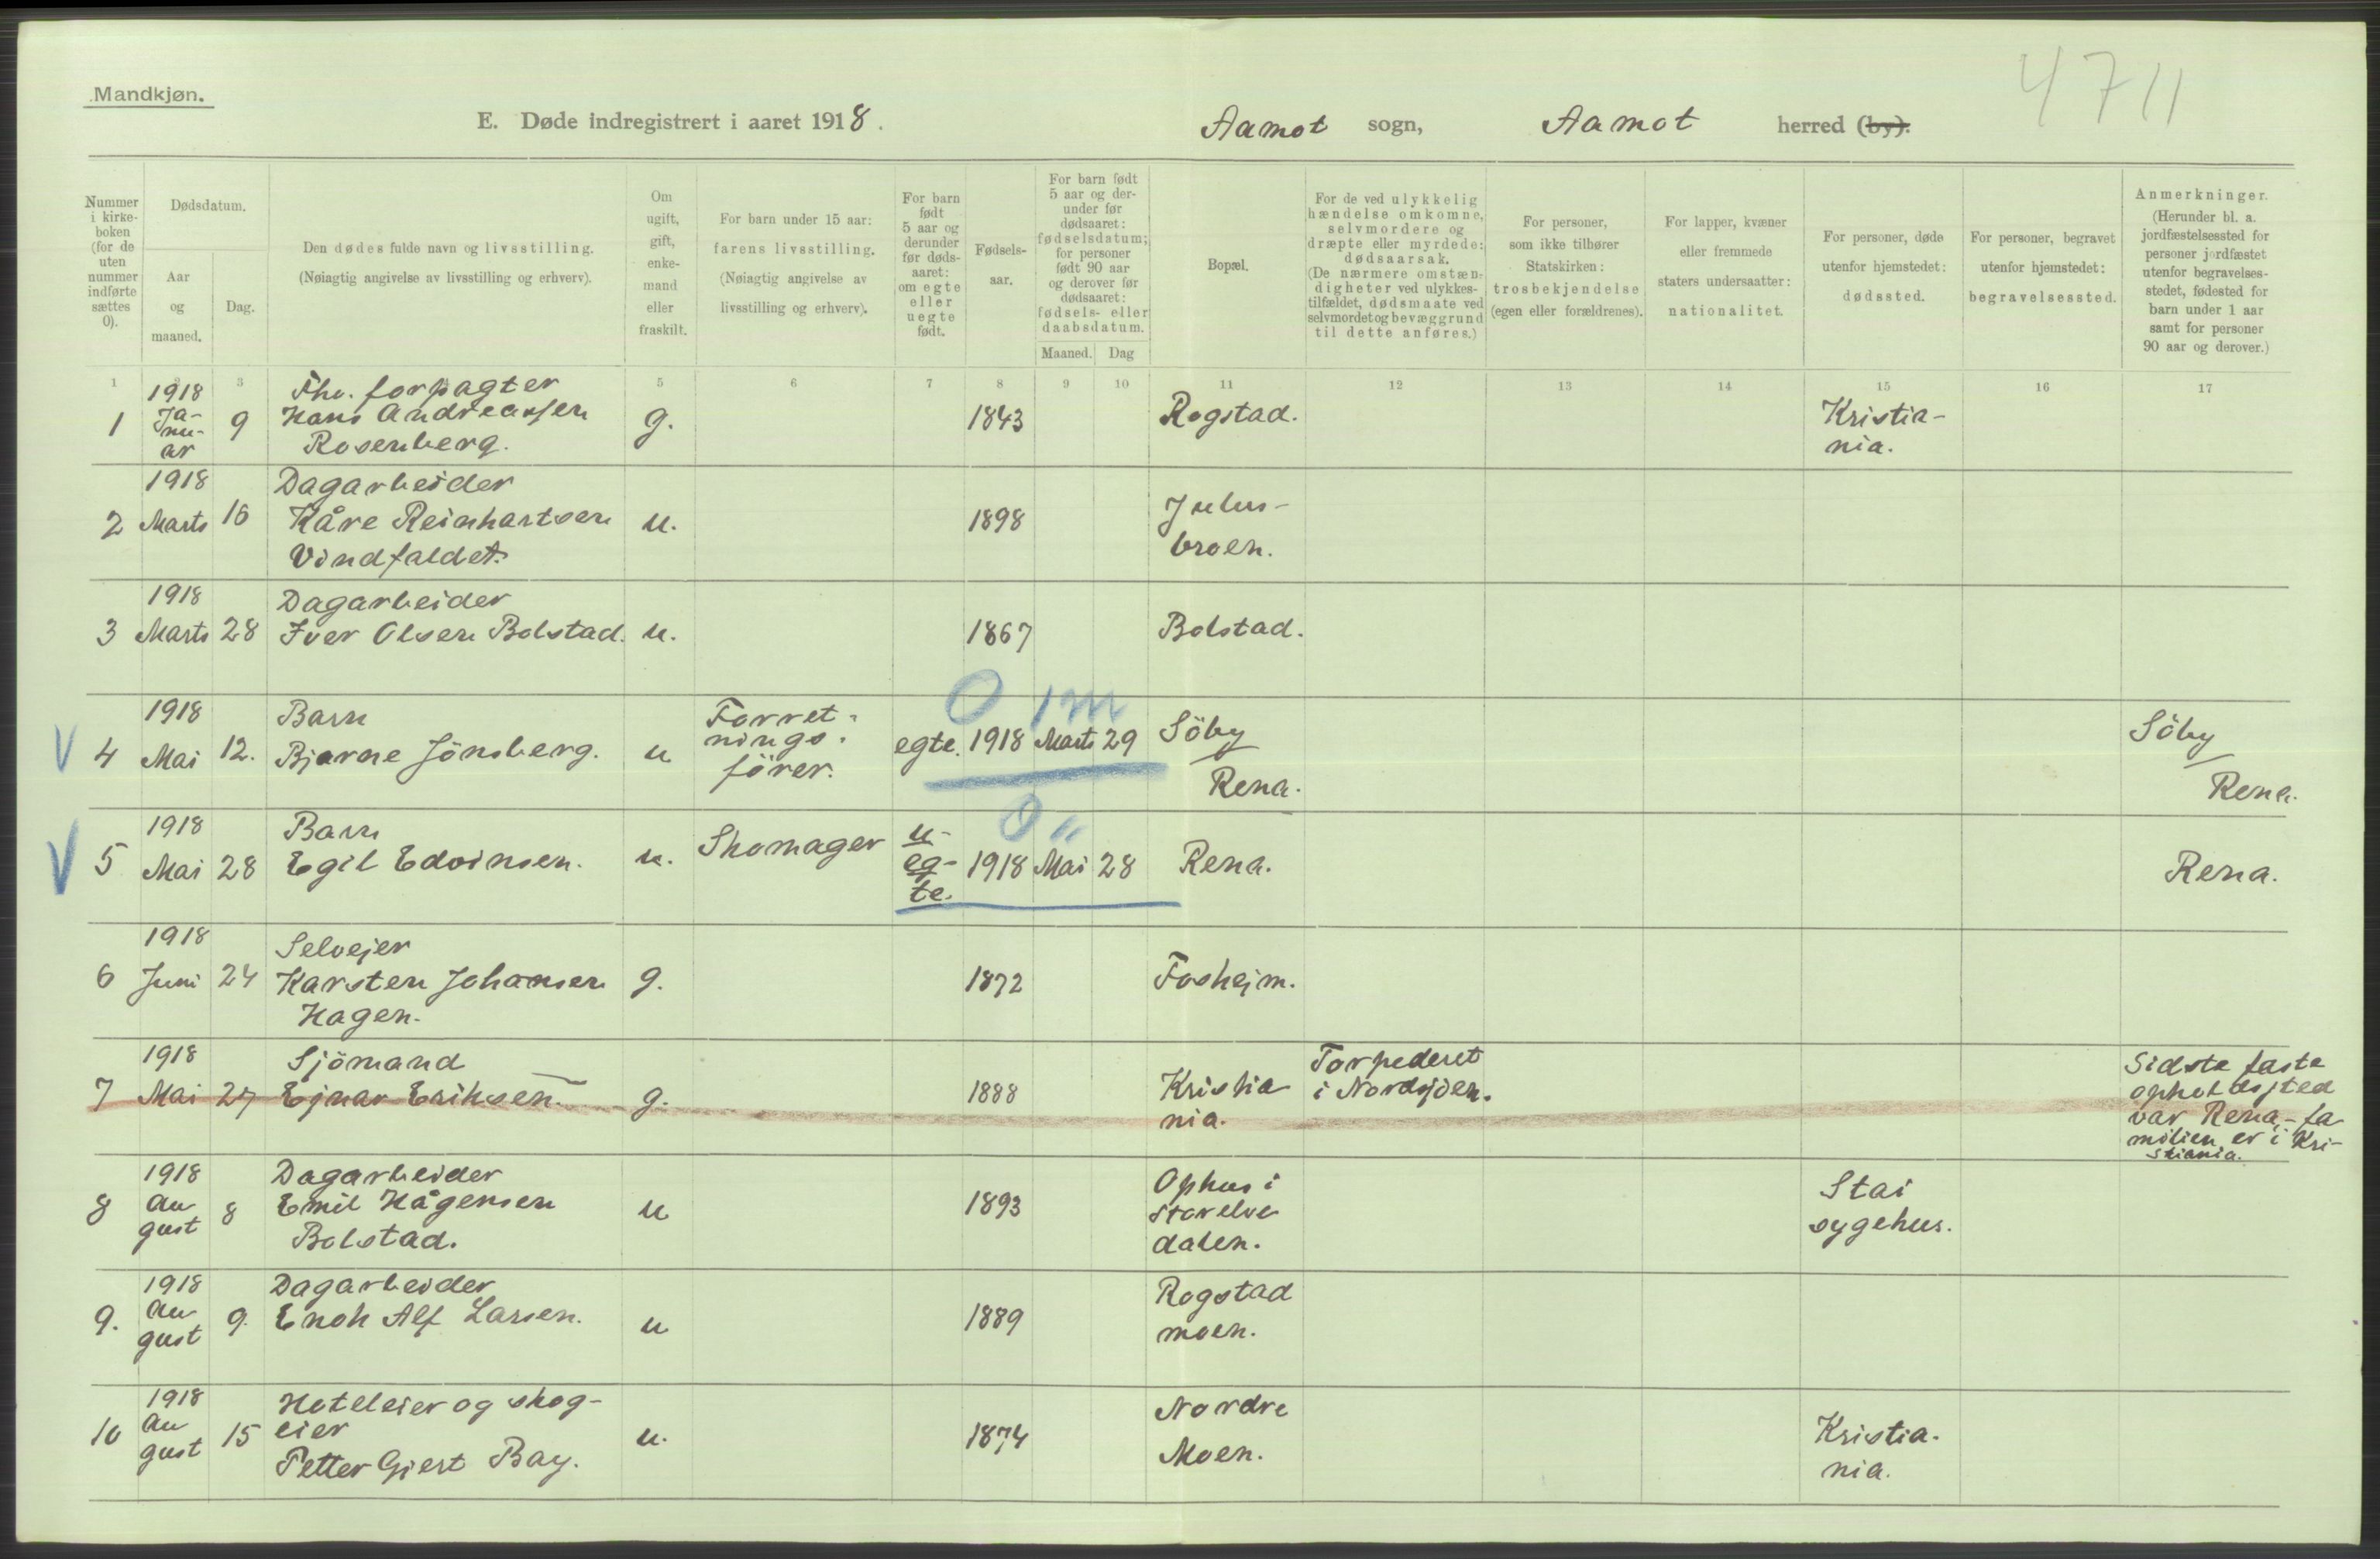 4711
Mandkjøn.
E. Døde indregistrert i aaret 1918.
Aamot sogn, Aamot herred (by).
Nummer
i kirke-
boken
(for de
uten
nummer
indførte
sættes
0).
Dødsdatum.
Aar
og
maaned.
Dag.
Den dødes fulde navn og livsstilling.
(Nøiagtig angivelse av livsstilling og erhverv).
Om
ugift,
gift,
enke-
mand
eller
fraskilt.
For barn under 15 aar:
farens livsstilling.
(Nøiagtig angivelse av
livsstilling og erhverv).
For barn
født
5 aar og
derunder
før døds-
aaret:
om egte
eller
uegte
født.
Fødsels-
aar.
For barn født
5 aar og der-
under før
dødsaaret:
fødselsdatum;
for personer
født 90 aar
og derover før
dødsaaret:
fødsels- eller
daabsdatum.
Maaned. Dag
Bopæl.
For de ved ulykkelig
hændelse omkomne,
selvmordere og
dræpte eller myrdede:
dødsaarsak.
(De nærmere omstæn-
digheter ved ulykkes-
tilfældet, dødsmaate ved
selvmordet og bevæggrund
til dette anføres.)
For personer,
som ikke tilhører
Statskirken:
trosbekjendelse
(egen eller forældrenes).
For lapper, kvæner
eller fremmede
staters undersaatter:
nationalitet.
For personer, døde
utenfor hjemstedet:
dødssted.
For personer, begravet
utenfor hjemstedet:
begravelsessted.
Anmerkninger.
(Herunder bl. a.
jordfæstelsessted for
personer jordfæstet
utenfor begravelses-
stedet, fødested for
barn under 1 aar
samt for personer
90 aar og derover.)
1 2 3 5 6 7 8 9 10 11 12 13 14 15 16 17
1
1918
Ja-
nu-
ar
9
Fhv. forpagter
Hans Andreassen
Rosenberg.
g.
1843
Rogstad.
Kristia-
nia.
2
1918
Marts
16
Dagarbeider
Kåre Reinhartsen
Vindfaldet.
u.
1898
Julus-
broen.
3
1918
Marts
28
Dagarbeider
Iver Olsen Bolstad.
u.
1867
Bolstad.
V
4
1918
Mai
12.
Barn
Bjarne Jönsberg.
u
Forret-
nings-
förer.
egte.
0 1m
1918 Marts 29
Söby
Rena.
Söby
Rena.
V
5
1918
Mai
28
Barn
Egil Edvinsen.
u.
Skomager
u-
eg-
te.
0 "
1918 Mai 28
Rena.
Rena.
6
1918
Juni
24
Selvejer
Karsten Johansen
Hagen.
g.
1872
Fosheim.
7
1918
Mai
27
Sjömand
Ejnar Eriksen.
g.
1888
Kristia
nia.
Torpederet
i Nordsjöen.
Sidste faste
opholdssted
var Rena, - fa
milien er i Kri-
stiania.
8
1918
Au
gust
8
Dagarbeider
Emil Hågensen
Bolstad.
u
1893
Ophus i
Storelve
dalen.
Stai
sygehus.
9.
1918
Au
gust
9
Dagarbeider
Enok Alf Larsen.
u
1889
Rogstad
moen.
10
1918
Au
gust
15
Hoteleier og skog-
eier
Petter Giert Bay.
u.
1874
Nordre
Moen.
Kristia-
nia.